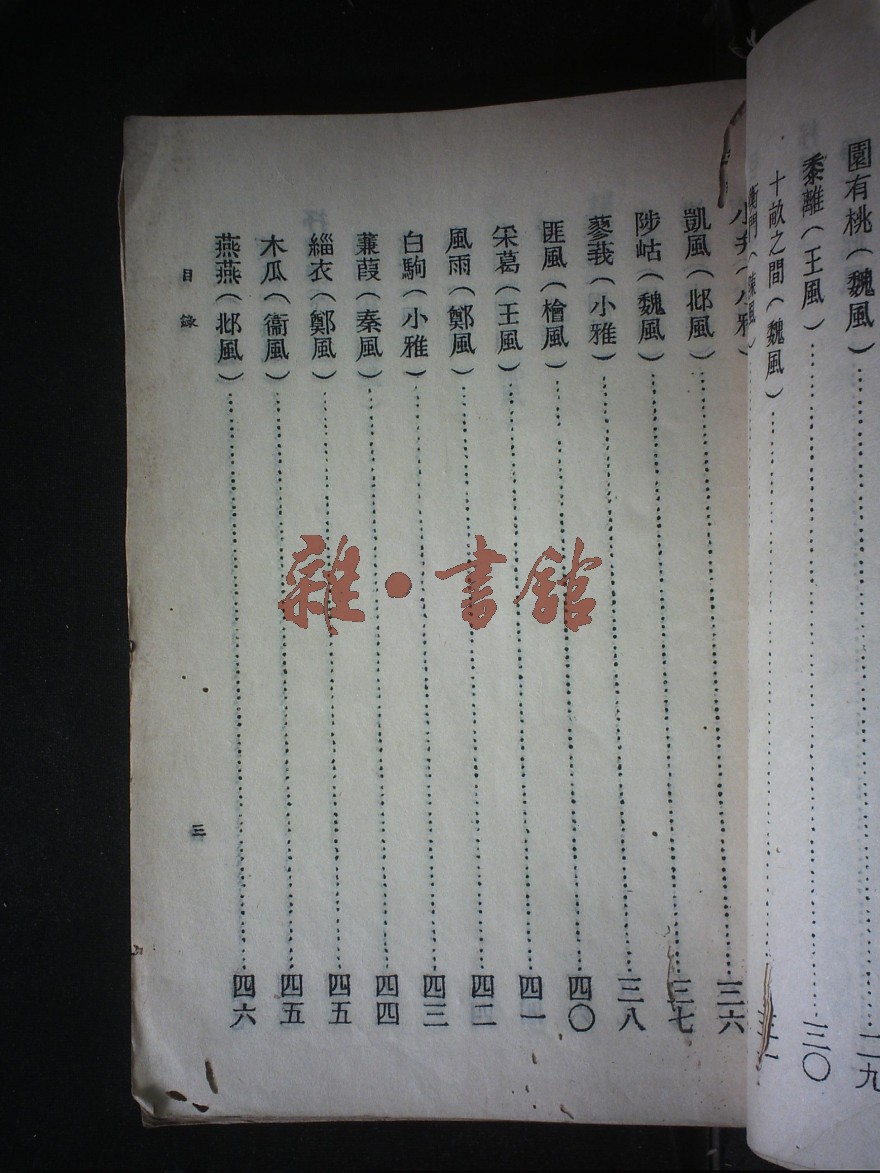 園有桃(魏風)……二九
黍離(王風)……三〇
十畝之間(魏風)……
衡門(陳風)……
小弁(小雅)
凱風(邶風)……三六
陟岵(魏風)……三七
蓼莪(小雅)……三八
匪風(檜風)……四〇
采葛(王風)……四一
風雨(鄭風)……四二
白駒(小雅)……四三
蒹葭(秦風)……四四
緇衣(鄭風)……四五
木瓜(衞風)……四五
燕燕(邶風)……四六
目錄 三
雜·書館